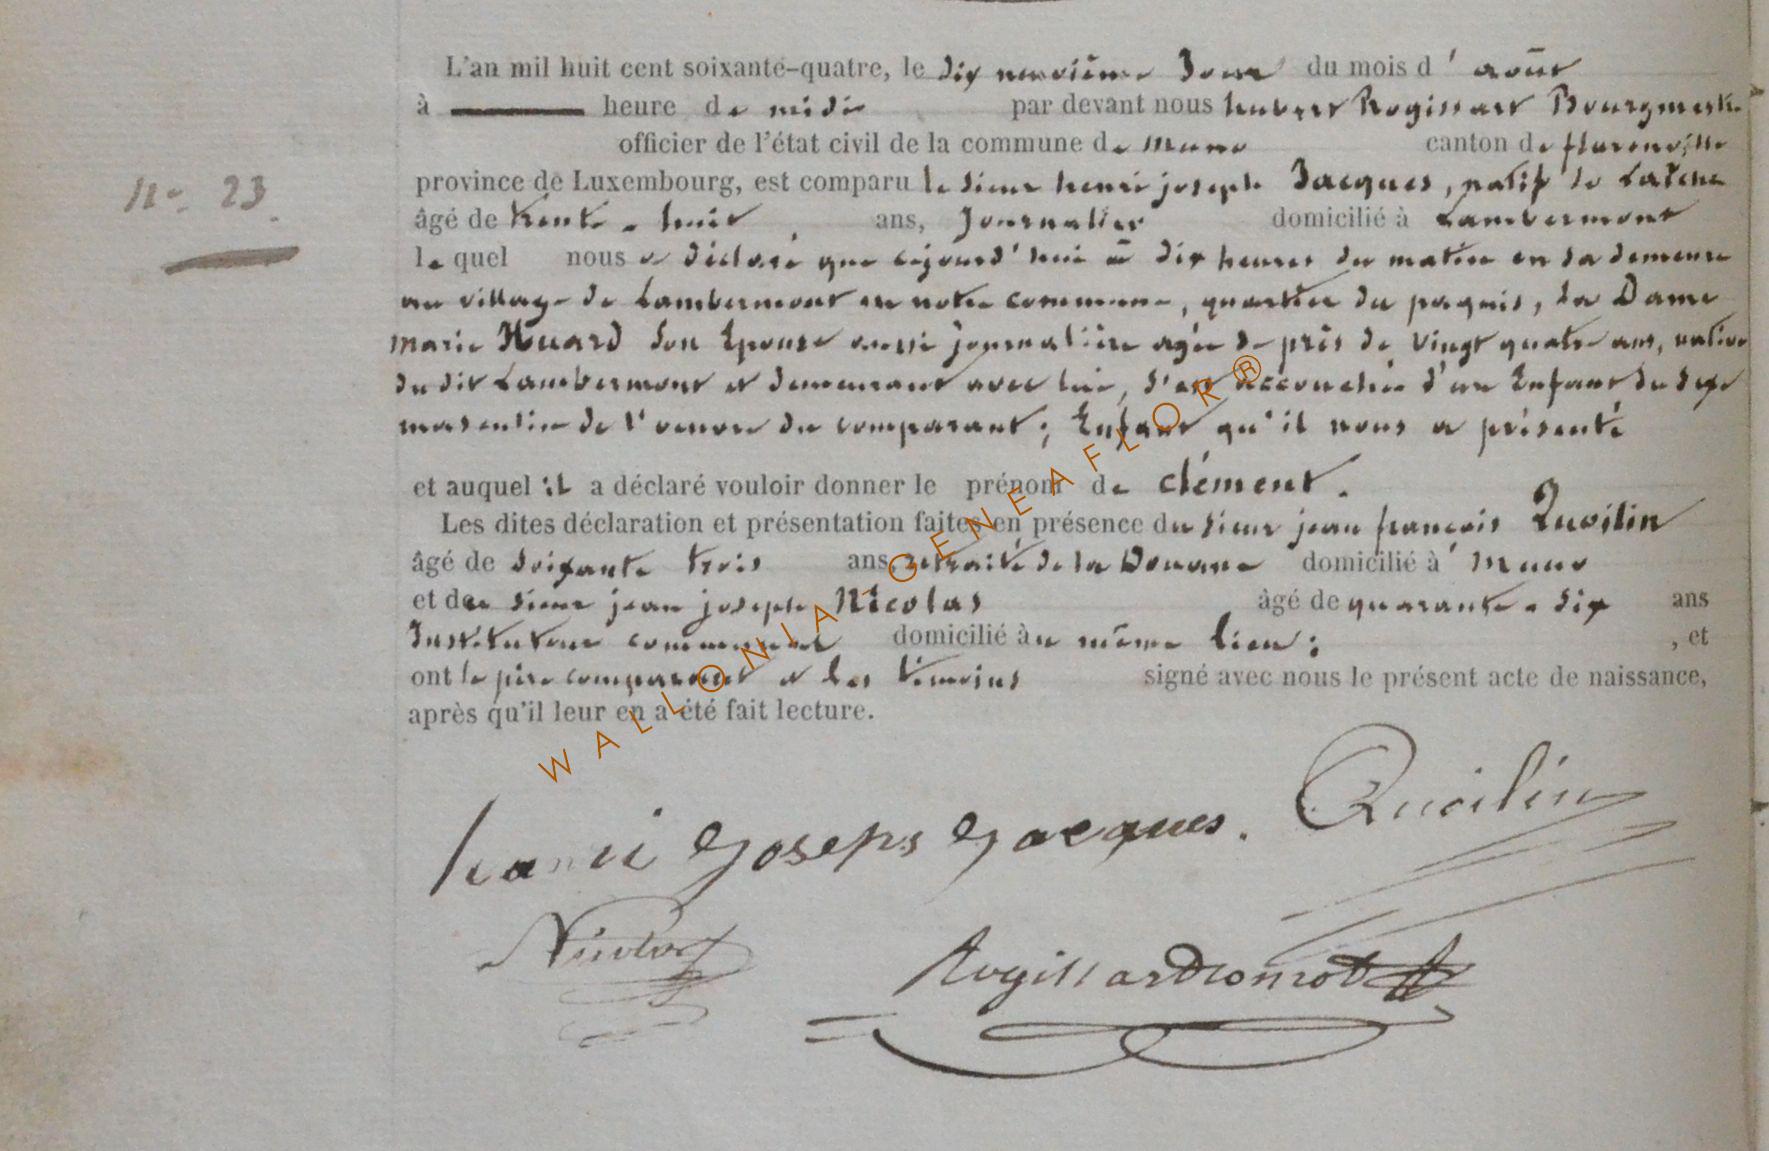 L'an mil huit cent soixante-quatre, le dix neuvième Jour du mois d' août
à heure de midi par devant nous hubert Rogissart Bourgmestre
officier de l'état civil de la commune de muno canton de florenville
N° 23.
province de Luxembourg, est comparu le sieur henri joseph Jacques, natif de Laiche
âgé de trente-huit ans, Journalier domicilié à Lambermont
lequel nous a déclaré que cejourd'hui à dix heures du matin en sa demeure
au village de Lambermont en notre commune, quartier du paquis, la Dame
marie Huard son Epouse aussi journalière agée de près de vingt quatre ans, native
du dit Lambermont et demeurant avec lui, s'est accouchée d'un Enfant du sexe
masculin de l'oeuvre du comparant; Enfant qu'il nous a présenté
et auquel il a déclaré vouloir donner le prénom de clément.
Les dites déclaration et présentation faites en présence du sieur jean françois Quoilin
âgé de soixante trois ans, retraité de la Douane domicilié à muno
et du sieur jean joseph Nicolas âgé de quarante-six ans
Instituteur communal domicilié au même lieu; , et
ont le père comparant et les témoins signé avec nous le présent acte de naissance,
après qu'il leur en a été fait lecture.
WALLONIA-GENEAFLOR®
henri Joseps Jacques. Quoilin
Nicolas